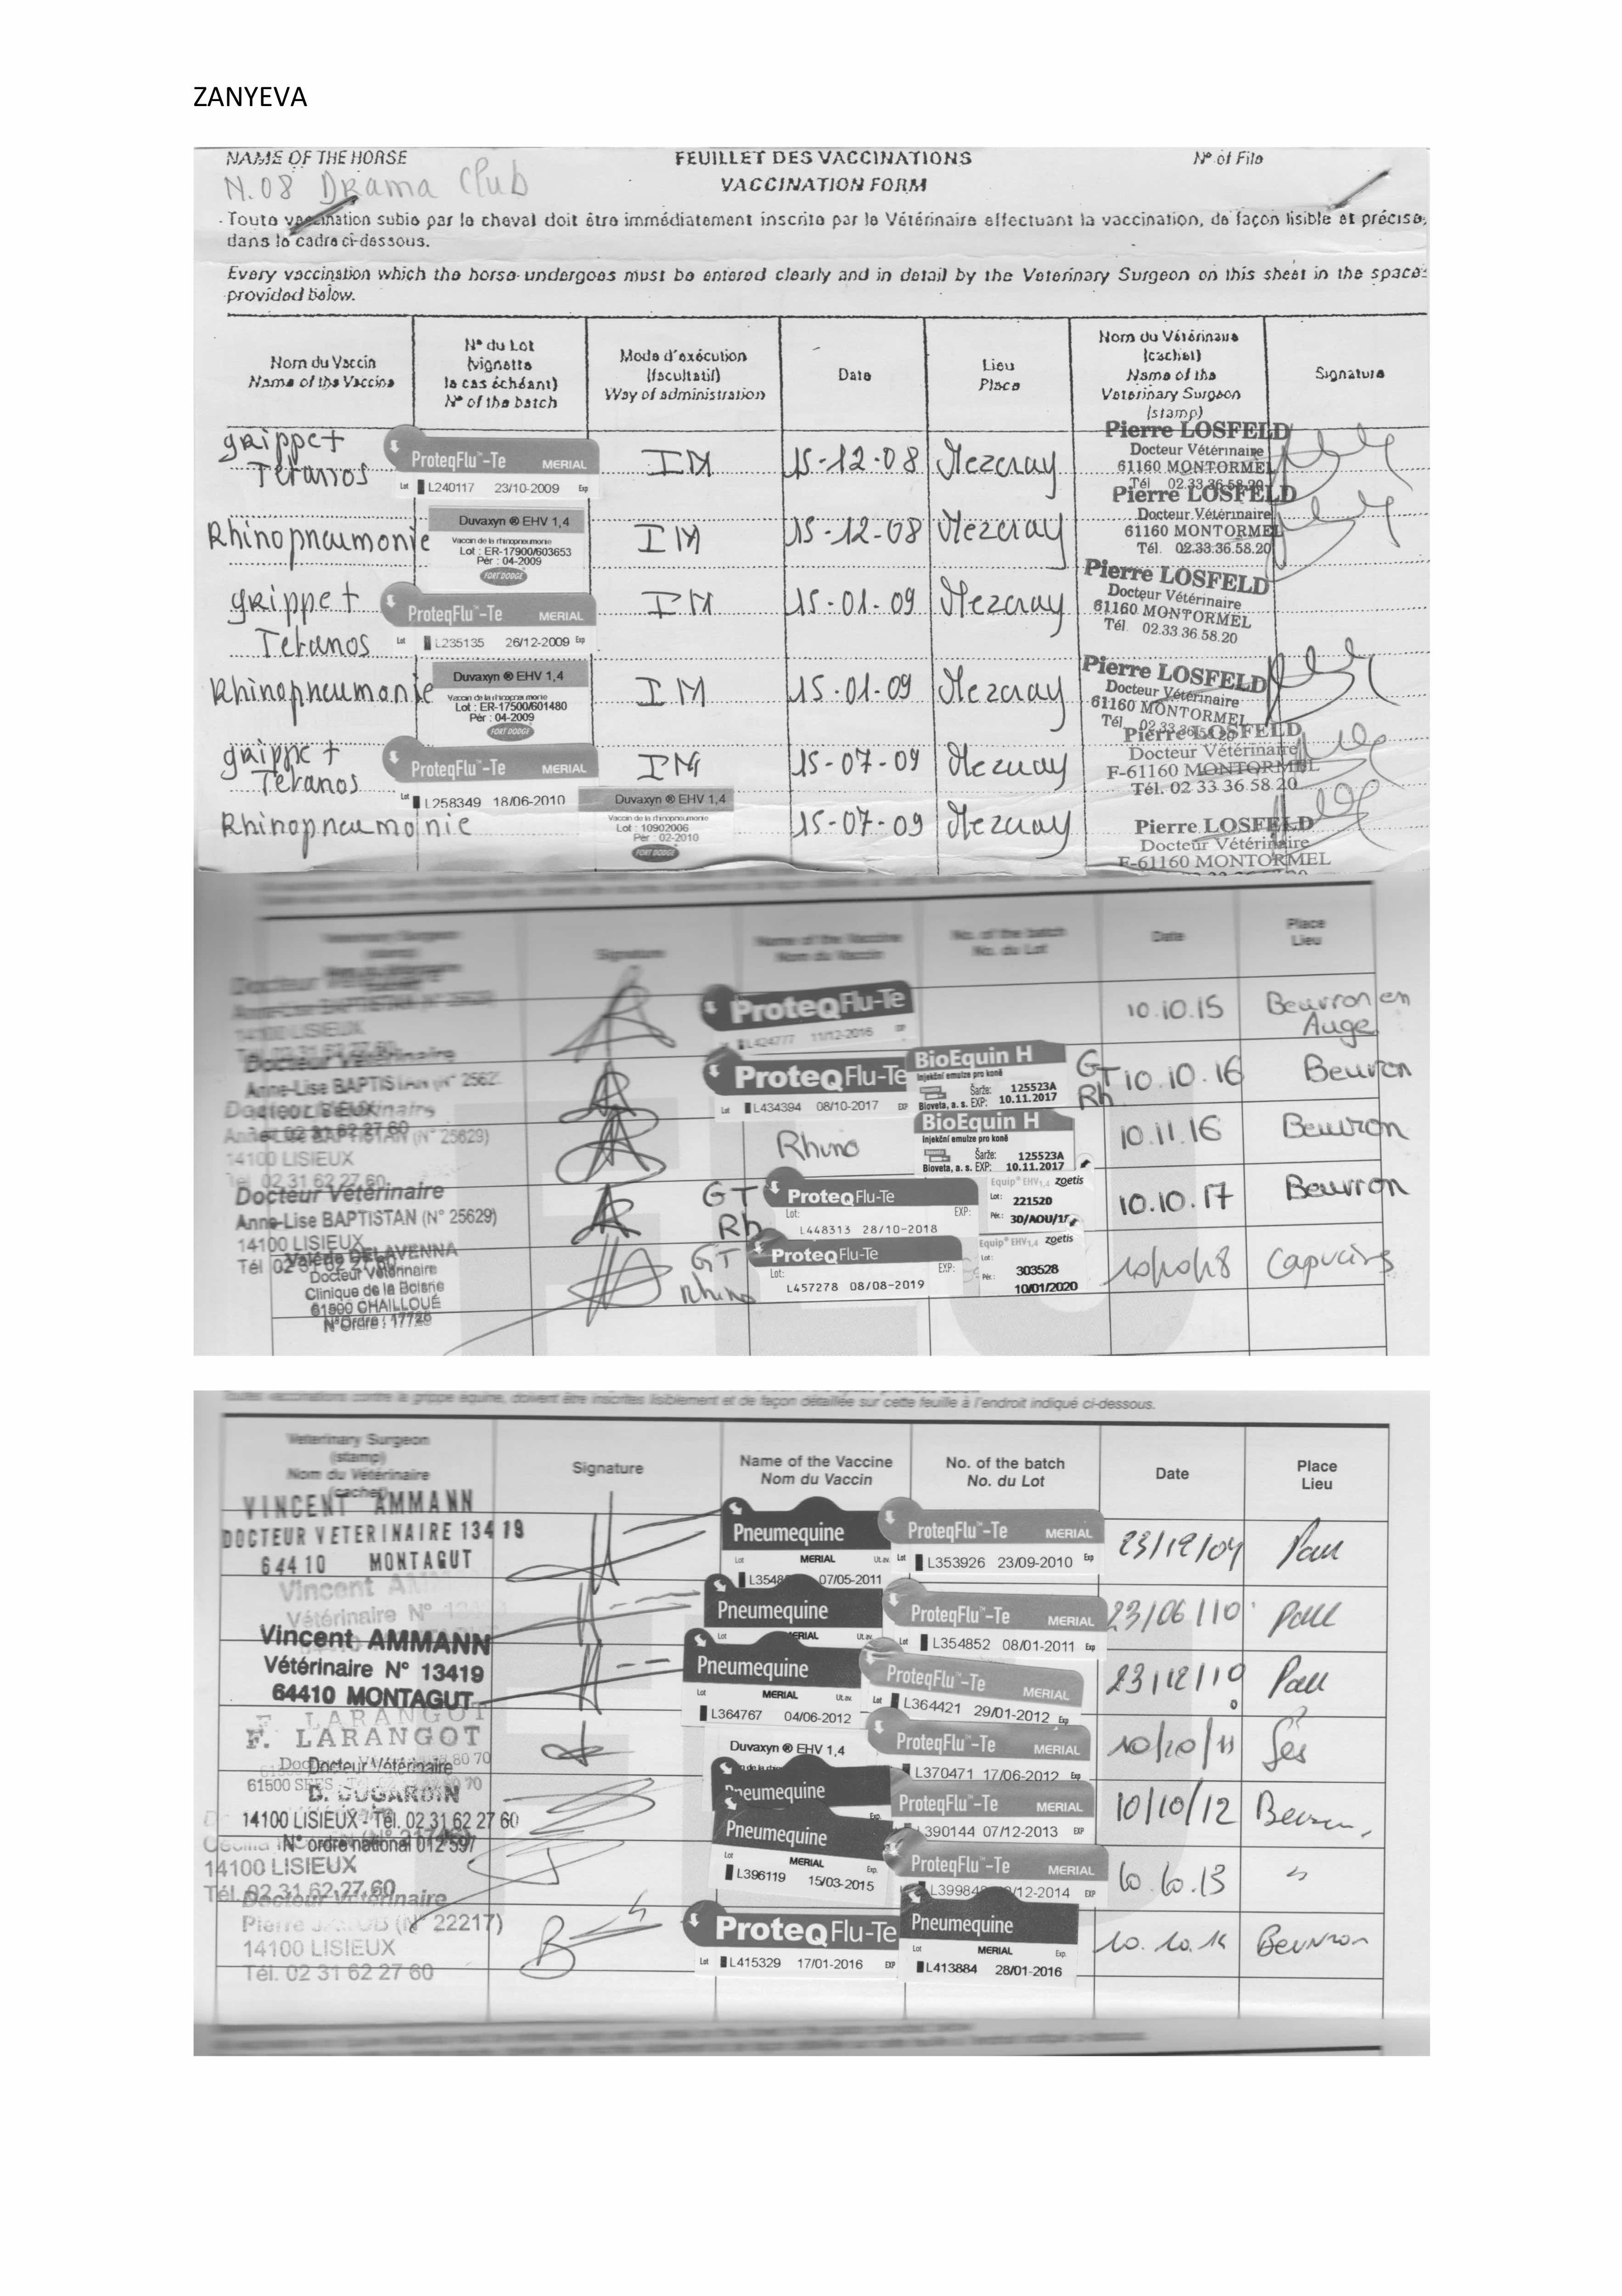 ZANYEVA
NAME OF THE HORSE
FEUILLET DES VACCINATIONS
N° of File
N.08 Drama Club
VACCINATION FORM
Toute vaccination subie par le cheval doit être immédiatement inscrite par le Vétérinaire effectuant la vaccination, de façon lisible et précise,
dans le cadre ci-dessous.
Every vaccination which the horse undergoes must be entered clearly and in detail by the Veterinary Surgeon on this sheet in the space
provided below.
Nom du Vaccin
Name of the Vaccine
N° du Lot
(vignette
le cas échéant)
N° of the batch
Mode d'exécution
(facultatif)
Way of administration
Date
Lieu
Place
Nom du Vétérinaire
(cachet)
Name of the
Veterinary Surgeon
(stamp)
Signature
grippe +
Tetanos
ProteqFlu™-Te MERIAL
Lot L240117 23/10-2009 Exp
IM
15-12-08
Mezeray
Pierre LOSFELD
Docteur Vétérinaire
61160 MONTORMEL
Tél 02.33.36.58.20
Rhinopneumonie
Duvaxyn ® EHV 1,4
Vaccin de la rhinopneumonie
Lot : ER-17900/603653
Pér : 04-2009
FORT DODGE
IM
15-12-08
Mezeray
Pierre LOSFELD
Docteur Vétérinaire
61160 MONTORMEL
Tél. 02.33.36.58.20
grippe +
Tetanos
ProteqFlu™-Te MERIAL
Lot L235135 26/12-2009 Exp
IM
15-01-09
Mezeray
Pierre LOSFELD
Docteur Vétérinaire
61160 MONTORMEL
Tél. 02.33 36 58.20
Rhinopneumonie
Duvaxyn ® EHV 1,4
Vaccin de la rhinopneumonie
Lot : ER-17500/601480
Pér : 04-2009
FORT DODGE
IM
15-01-09
Mezeray
Pierre LOSFELD
Docteur Vétérinaire
61160 MONTORMEL
Tél.
grippe +
Tetanos
ProteqFlu™-Te MERIAL
Lot L258349 18/06-2010
IM
15-07-09
Mezeray
Pierre LOSFELD
Docteur Vétérinaire
F-61160 MONTORMEL
Tél. 02 33 36 58 20
Rhinopneumonie
Duvaxyn ® EHV 1,4
Vaccin de la rhinopneumonie
Lot : 10902006
Pér : 02-2010
FORT DODGE
15-07-09
Mezeray
Pierre LOSFELD
Docteur Vétérinaire
F-61160 MONTORMEL
Signature
Name of the Vaccine
Nom du Vaccin
No. of the batch
No. du Lot
Date
Place
Lieu
ProteqFlu-Te
L424777 11/12-2016
10.10.15
Beuvron en
Auge
Docteur Vétérinaire
Anne-Lise BAPTISTAN
ProteqFlu-Te
Lot L434394 08/10-2017 EXP
BioEquin H
Injekční emulze pro koně
Šarže: 125523A
Bioveta, a. s. EXP: 10.11.2017
GT
Rh
10.10.16
Beuvron
Docteur Vétérinaire
14100 LISIEUX
Rhino
BioEquin H
Injekční emulze pro koně
Šarže: 125523A
Bioveta, a. s. EXP: 10.11.2017
10.11.16
Beuvron
Docteur Vétérinaire
Anne-Lise BAPTISTAN (N° 25629)
14100 LISIEUX
Tél 02 31 62 27 60
GT
Rh
ProteqFlu-Te
Lot: EXP:
L448313 28/10-2018
Equip® EHV1,4 zoetis
Lot: 221520
Pér.: 30/AOU/1
10.10.17
Beuvron
Valérie DELAVENNA
Docteur Vétérinaire
Clinique de la Boisne
61500 CHAILLOUÉ
N°Ordre : 17726
GT
Rhino
ProteqFlu-Te
Lot: EXP:
L457278 08/08-2019
Equip® EHV1,4 zoetis
Lot: 303528
Pér.: 10/01/2020
10/10/18
Capucins
Toutes vaccinations contre la grippe équine, doivent être inscrites lisiblement et de façon détaillée sur cette feuille à l'endroit indiqué ci-dessous.
Veterinary Surgeon
(stamp)
Nom du Vétérinaire
(cachet)
Signature
Name of the Vaccine
Nom du Vaccin
No. of the batch
No. du Lot
Date
Place
Lieu
VINCENT AMMANN
DOCTEUR VETERINAIRE 13419
64410 MONTAGUT
Pneumequine
Lot MERIAL Ut.av.
07/05-2011
ProteqFlu™-Te MERIAL
Lot L353926 23/09-2010 Exp
23/12/09
Pau
Vincent
Vétérinaire N°
Pneumequine
Lot MERIAL Ut.av.
ProteqFlu™-Te MERIAL
Lot L354852 08/01-2011 Exp
23/06/10
Pau
Vincent AMMANN
Vétérinaire N° 13419
64410 MONTAGUT
Pneumequine
Lot MERIAL Ut.av.
L364767 04/06-2012
ProteqFlu™-Te MERIAL
Lot L364421 29/01-2012 Exp
23/12/10
Pau
F. LARANGOT
Docteur Vétérinaire
61500 SEES
Duvaxyn ® EHV 1,4
ProteqFlu™-Te MERIAL
L370471 17/06-2012 Exp
10/10/11
Sées
D. DUGARDIN
14100 LISIEUX - Tél. 02 31 62 27 60
N° ordre national 012597
Pneumequine
ProteqFlu™-Te MERIAL
L390144 07/12-2013 EXP
10/10/12
14100 LISIEUX
Tél. 02 31 62 27 60
Pneumequine
Lot MERIAL Exp.
L396119 15/03-2015
ProteqFlu™-Te MERIAL
12-2014 EXP
10.10.13
Docteur Vétérinaire
Pierre (N° 22217)
14100 LISIEUX
Tél. 02 31 62 27 60
ProteqFlu-Te
Lot L415329 17/01-2016 EXP
Pneumequine
Lot MERIAL Exp.
L413884 28/01-2016
10.10.14
Beuvron